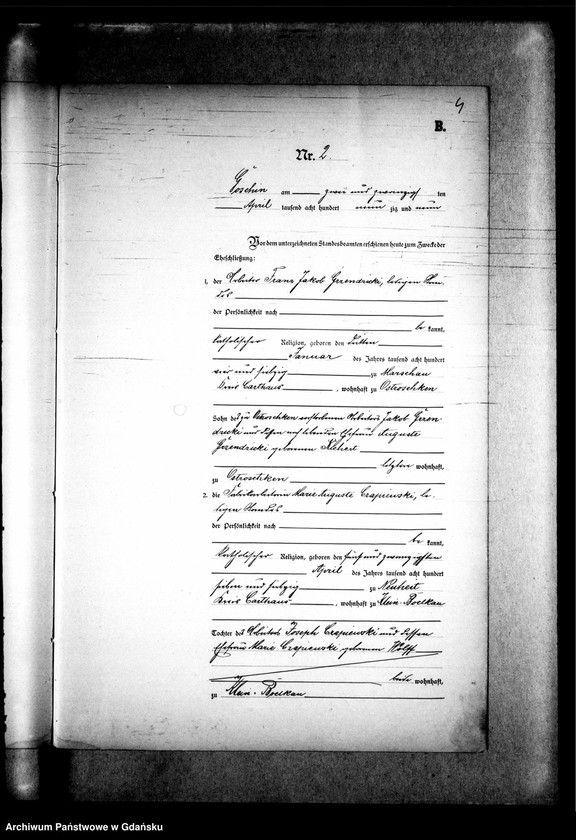 4
B.
Nr. 2.
Goschin am zwei und zwanzigsten ten
April tausend acht hundert neun zig und neun
Vor dem unterzeichneten Standesbeamten erschienen heute zum Zwecke der
Eheschließung:
1. der Arbeiter Franz Jakob Grzendzicki, ledigen Stan-
des
der Persönlichkeit nach
be kannt,
katholischer Religion, geboren den dritten
Januar des Jahres tausend acht hundert
vier und siebzig zu Marschau
Kreis Carthaus, wohnhaft zu Ostroschken
Sohn des zu Ostroschken verstorbenen Arbeiters Jakob
und dessen noch lebenden Ehefrau Auguste
geborenen
letztere wohnhaft,
zu Ostroschken
2. die Fabrikarbeiterin Marie Auguste Czapiewski, le-
digen Standes
der Persönlichkeit nach
be kannt,
katholischer Religion, geboren den fünf und zwanzigsten
April des Jahres tausend acht hundert
sieben und siebzig zu Neuheit
Kreis Carthaus, wohnhaft zu Klein-Boelkau
Tochter des Arbeiters Joseph Czapiewski und dessen
Ehefrau Marie Czapiewski geborenen Wolff
beide wohnhaft,
zu Klein-Boelkau
Archiwum Państwowe w Gdańsku